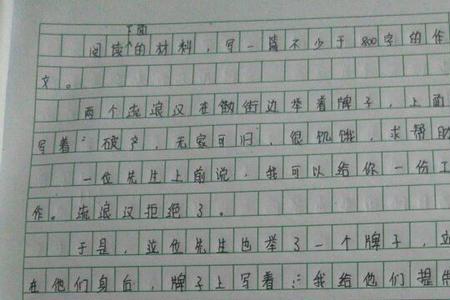 下面
阅读^的材料，写一篇不少于800字的作
文。
两个流浪汉在街边举着牌子，上面
写着：破产，无家可归，很饥饿，求帮助
一位先生上前说，我可以给你一份工
作。流浪汉拒绝了。
于是，这位先生也举了一个牌子，站
在他们身后，牌子上写着：我给他们提供